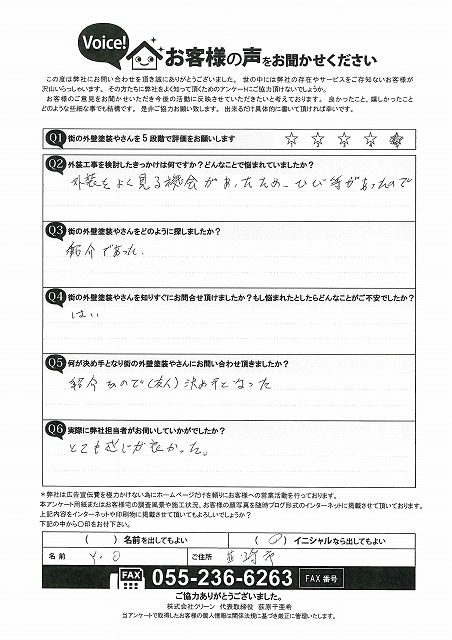 Voice!
お客様の声をお聞かせください
この度は弊社にお問い合わせを頂き誠にありがとうございました。世の中には弊社の存在やサービスをご存知ないお客様が
沢山いらっしゃいます。その方たちに弊社をよく知って頂くためのアンケートにご協力頂けないでしょうか。
お客様のご意見をお聞かせいただき今後の活動に反映させていただきたいと考えております。良かったこと、嬉しかったこと
どのような些細な事でも結構です。是非ご協力お願い致します。出来るだけ具体的に書いて頂ければ幸いです。
Q1 街の外壁塗装やさんを5段階で評価をお願いします ☆ ☆ ☆ ☆ ☆
Q2 外装工事を検討したきっかけは何ですか?どんなことで悩まれていましたか?
外装をよく見る機会があったため、ひび等があったので
Q3 街の外壁塗装やさんをどのように探しましたか?
紹介であった。
Q4 街の外壁塗装やさんを知りすぐにお問合せ頂けましたか?もし悩まれたとしたらどんなことがご不安でしたか?
はい
Q5 何が決め手となり街の外壁塗装やさんにお問い合わせ頂きましたか?
紹介なので(友人)決め手となった
Q6 実際に弊社担当者がお伺いしていかがでしたか?
とても感じが良かった。
*弊社は広告宣伝費を極力かけない為にホームページだけを頼りにお客様への営業活動を行っております。
本アンケート用紙またはお客様宅の調査風景や施工状況、お客様の顔写真を随時ブログ形式のインターネットに掲載させて頂いております。
上記内容をインターネットや印刷物に掲載させて頂いてもよろしいでしょうか?
下記の中から〇印をお付下さい。
( )名前を出してもよい (〇)イニシャルなら出してもよい
名前 Y.O ご住所
FAX 055-236-6263 FAX番号
ご協力ありがとうございました。
株式会社クリーン 代表取締役 荻原千亜希
当アンケートで取得したお客様の個人情報は関係法規に基づき厳正に管理いたします。